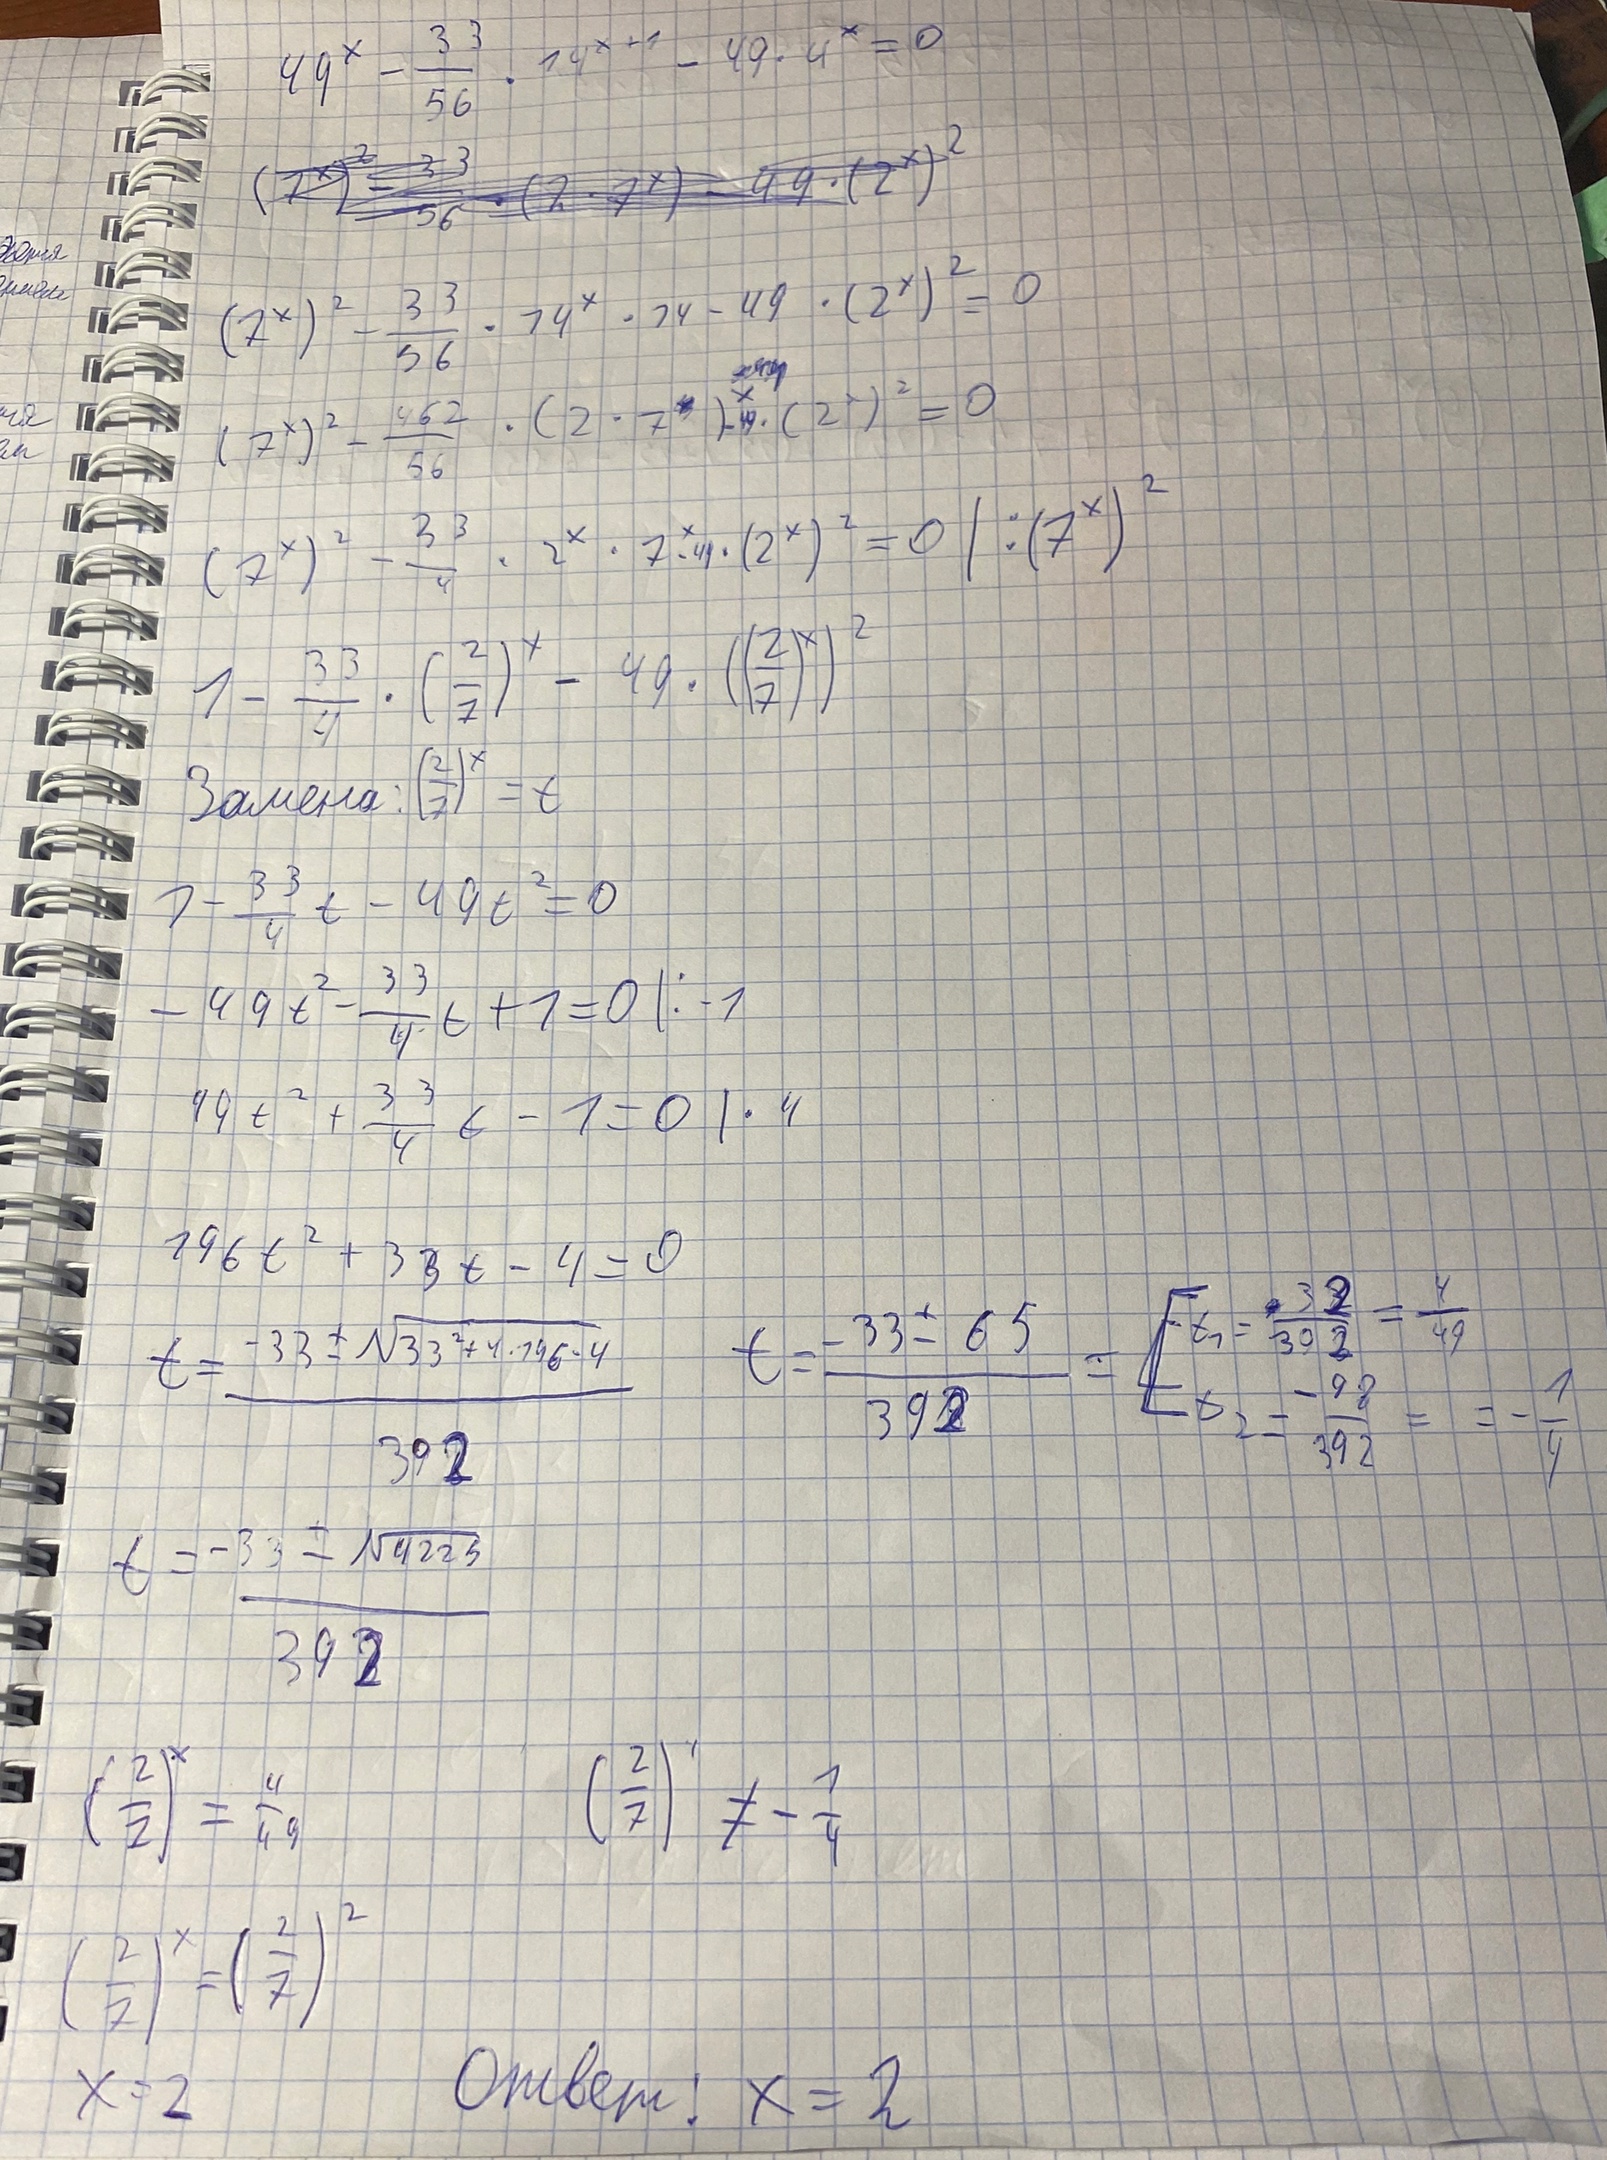 49^x - 33/56 · 14^(x+1) - 49 · 4^x = 0
(7^x)^2 - 33/56 · (2 · 7^x) - 49 · (2^x)^2
(7^x)^2 - 33/56 · 14^x · 14 - 49 · (2^x)^2 = 0
(7^x)^2 - 462/56 · (2 · 7)^x - 49 · (2^x)^2 = 0
(7^x)^2 - 33/4 · 2^x · 7^x - 49 · (2^x)^2 = 0 | : (7^x)^2
1 - 33/4 · (2/7)^x - 49 · ((2/7)^x)^2
Замена: (2/7)^x = t
1 - 33/4 t - 49t^2 = 0
-49t^2 - 33/4 t + 1 = 0 | : -1
49t^2 + 33/4 t - 1 = 0 | · 4
196t^2 + 33t - 4 = 0
t = (-33 ± √(33^2 + 4 · 196 · 4))/392
t = (-33 ± 65)/392 = [ t1 = 32/392 = 4/49
t2 = -98/392 = = -1/4
t = (-33 ± √4225)/392
(2/7)^x = 4/49
(2/7)^x ≠ -1/4
(2/7)^x = (2/7)^2
x = 2
Ответ: x = 2